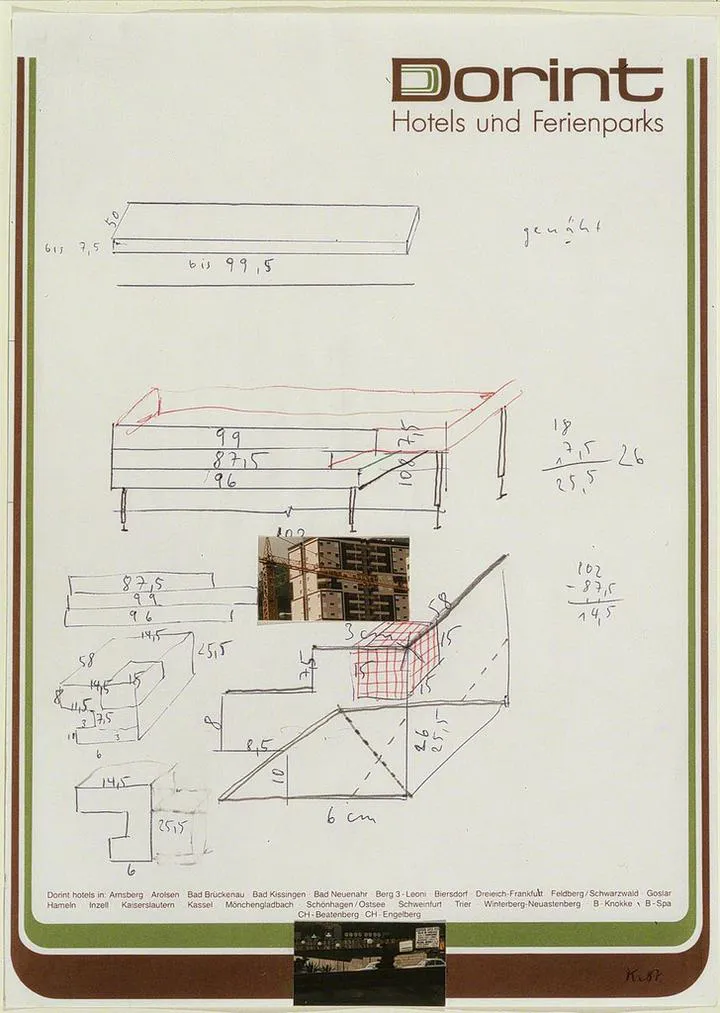 Dorint
Hotels und Ferienparks
50
bis 7,5
bis 99,5
genäht
99
87,5
96
7,5
108
102
18
7,5
25,5
26
102
- 87,5
14,5
87,5
99
96
14,5
58
25,5
14,5
15
8
11,5
3
7,5
3
6
58
3 cm
15
15
15
7,5
8
8,5
10
26
25,5
6 cm
14,5
25,5
6
Dorint hotels in: Arnsberg Arolsen Bad Brückenau Bad Kissingen Bad Neuenahr Berg 3-Leoni Biersdorf Dreieich-Frankfurt Feldberg/Schwarzwald Goslar
Hameln Inzell Kaiserslautern Kassel Mönchengladbach Schönhagen/Ostsee Schweinfurt Trier Winterberg-Neuastenberg B-Knokke B-Spa
CH-Beatenberg CH-Engelberg
K. 87